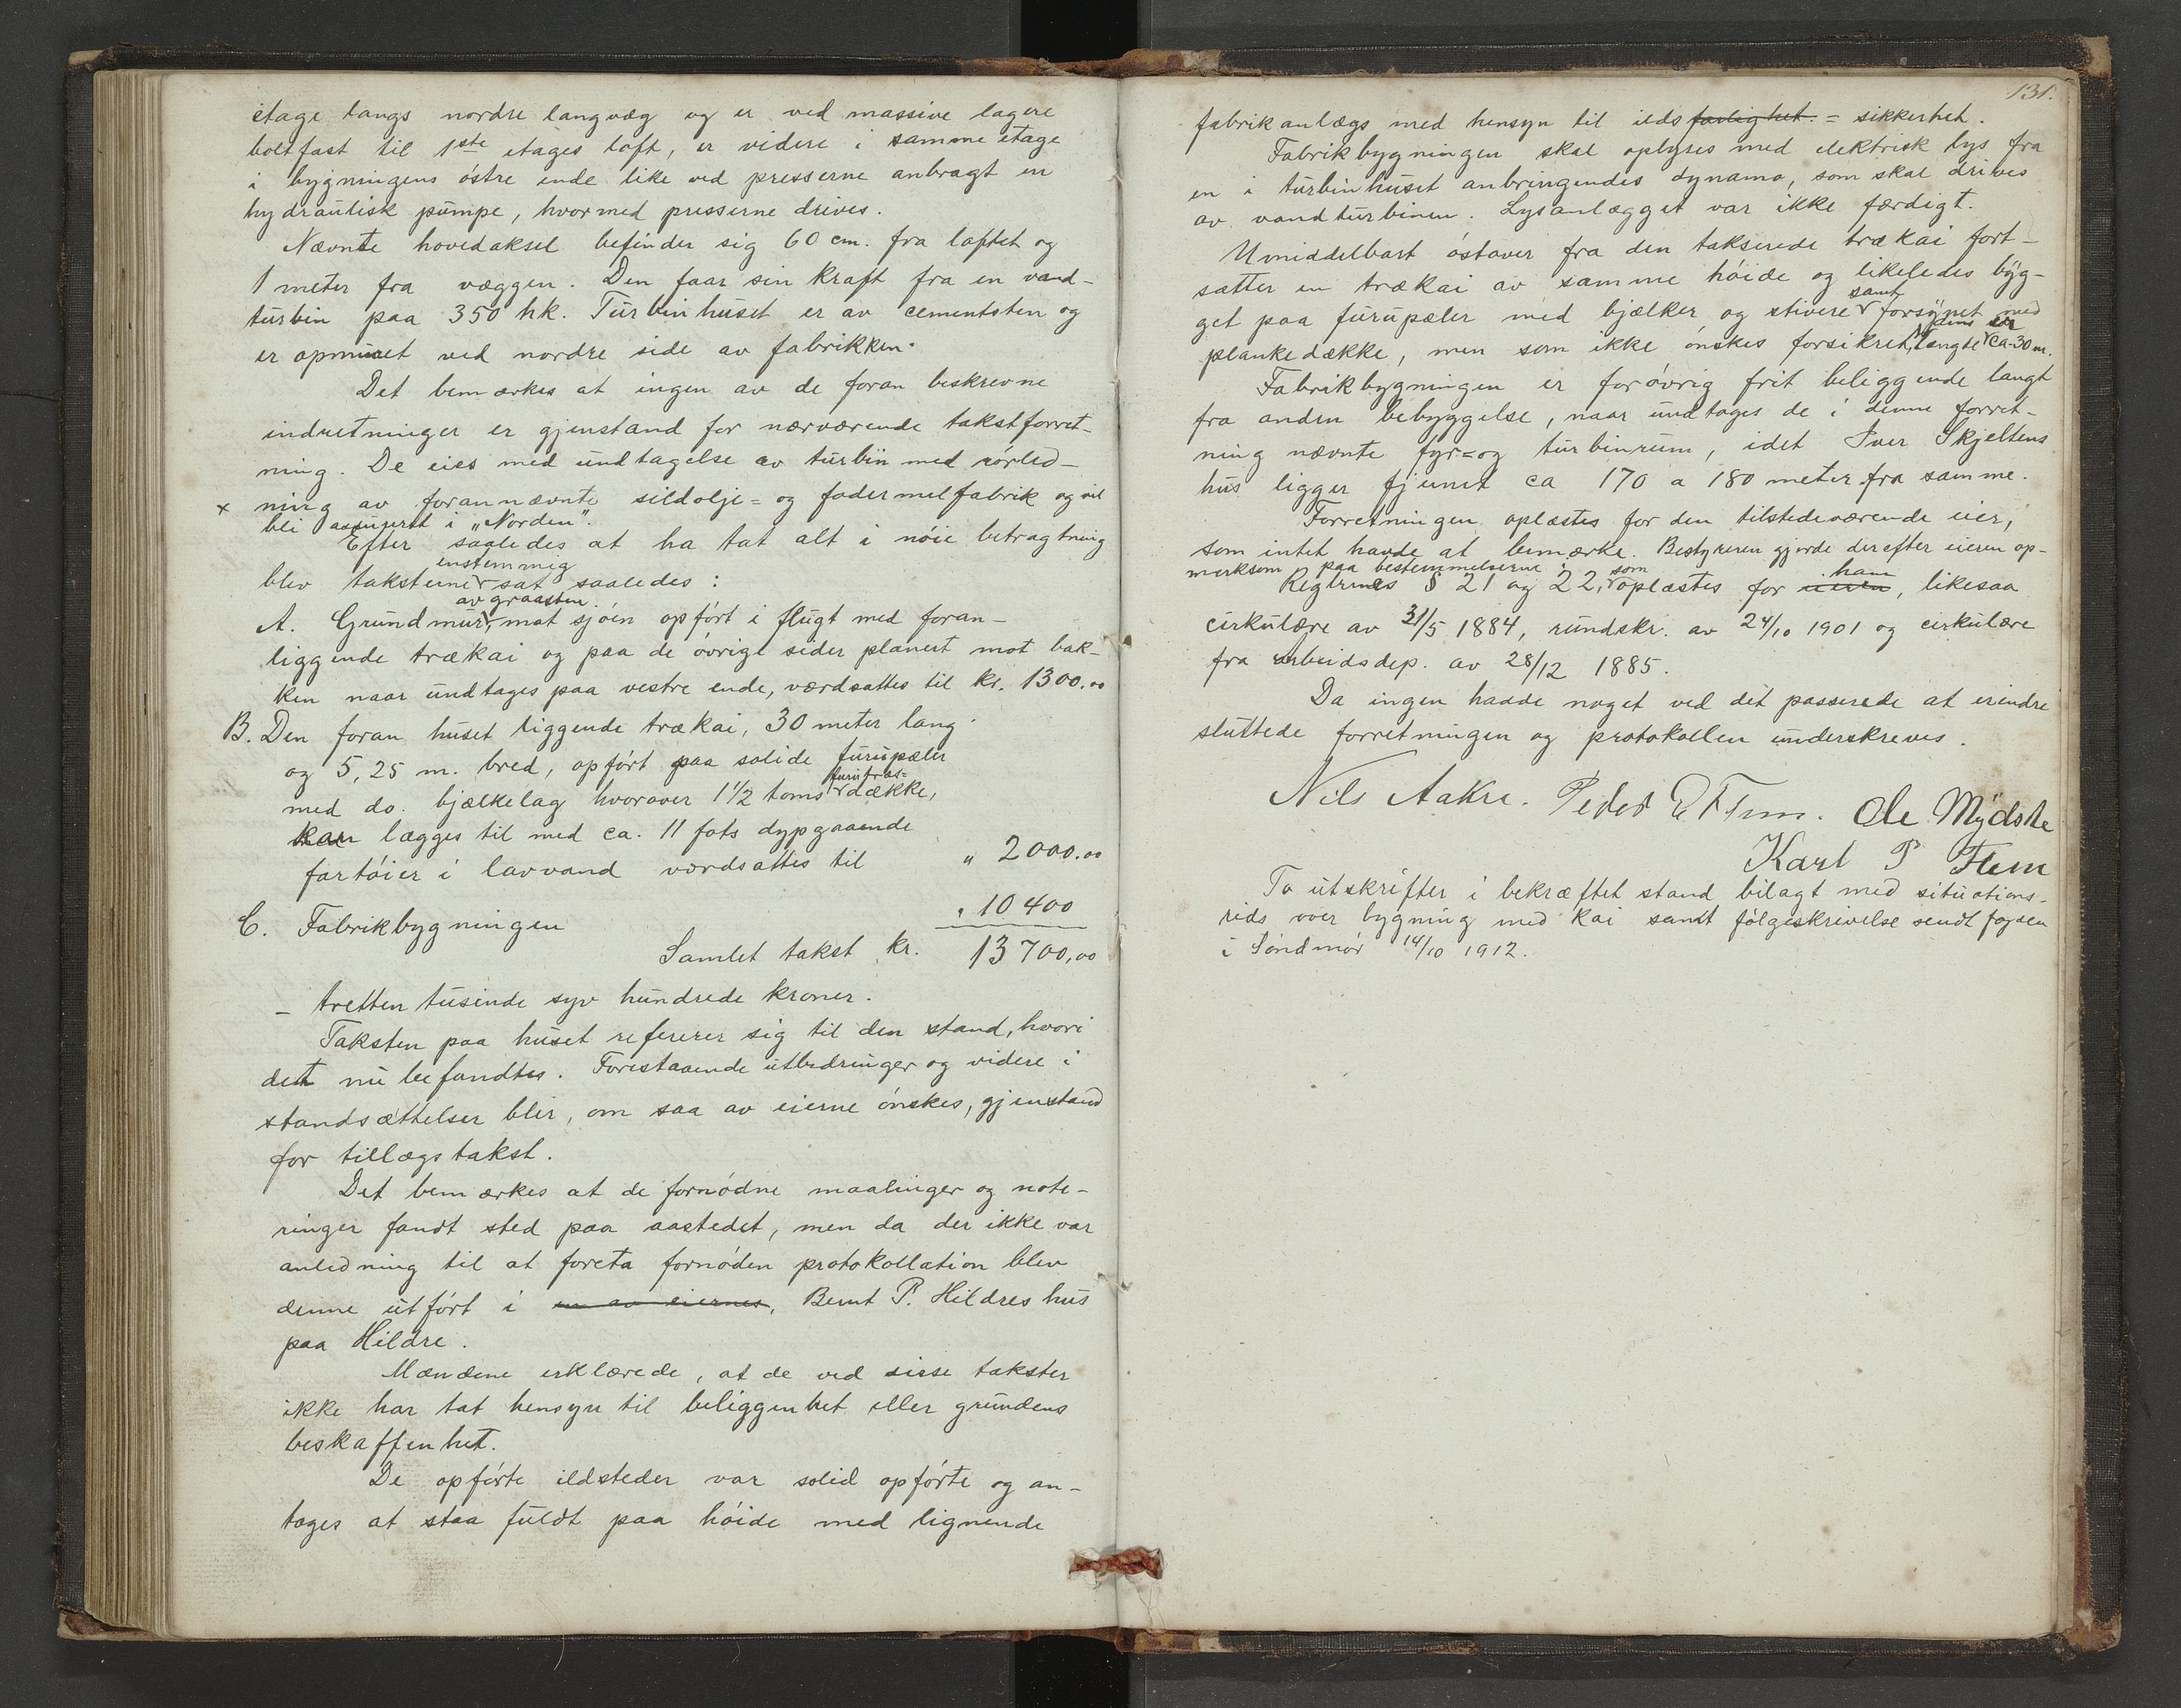 etage langs nordre langvæg og er ved massive lagere
boltfast til 1ste etages loft, er videre i samme etage
i bygningens östre ende like ved presserne anbragt en
hydraulisk pumpe, hvormed presserne drives.
Nævnte hovedaksel befinder sig 60 cm. fra loftet og
1 meter fra væggen. Den faar sin kraft fra en vand-
turbin paa 350 hk. Turbinhuset er av cementsten og
er opmuret ved nordre side av fabrikken.
Det bemærkes at ingen av de foran beskrevne
indretninger er gjenstand for nærværende takstforret-
ning. De eies med undtagelse av turbin med rörled-
x ning av forannævnte sildolje= og fodermelfabrik og vil
bli assurert i „Norden".
Efter saaledes at ha tat alt i nöie betragtning
enstemmig
blev taksterne sat saaledes:
av graasten
A. Grundmur, mot sjöen opfört i flugt med foran-
liggende trækai og paa de övrige sider planert mot bak-
ken naar undtages paa vestre ende, værdsattes til kr. 1300.00
B. Den foran huset liggende trækai, 30 meter lang
og 5,25 m. bred, opfört paa solide furupæler
furutræs=
med do. bjælkelag hvorover 1 1/2 toms dække,
kan lægges til med ca. 11 fots dypgaaende
fartöier i lavvand værdsattes til " 2000.00
C. Fabrikbygningen " 10400
Samlet takst kr. 13700,00
- tretten tusinde syv hundrede kroner.
Taksten paa huset refererer sig til den stand, hvori
det nu befandtes. Forestaaende utbedringer og videre i
standsættelser blir, om saa av eierne önskes, gjenstand
for tillægstakst.
Det bemærkes at de fornödne maalinger og note-
ringer fandt sted paa aastedet, men da der ikke var
anledning til at foreta fornöden protokollation blev
denne utfört i en av eiernes, Bernt P. Hildres hus
paa Hildre.
Mændene erklærede, at de ved disse takster
ikke har tat hensyn til beliggenhet eller grundens
beskaffenhet.
De opförte ildsteder var solid opförte og an-
tages at staa fuldt paa höide med lignende
131.
fabrikanlægs med hensyn til ildsfarlighet. = sikkerhet.
Fabrikbygningen skal oplyses med elektrisk lys fra
en i turbinhuset anbringendes dynamo, som skal drives
av vandturbinen. Lysanlægget var ikke færdigt.
Umiddelbart östover fra den takserede trækai fort-
sætter en trækai av samme höide og likeledes byg-
samt
get paa furupæler med bjælker og stivere forsynet med
dens er
plankedække, men som ikke önskes forsikret, længde ca. 30 m.
Fabrikbygningen er forövrig frit beliggende langt
fra anden bebyggelse, naar undtages de i denne forret-
ning nævnte fyr= og turbinrum, idet Iver Skjeltens
hus ligger fjernet ca 170 a 180 meter fra samme.
Forretningen oplæstes for den tilstedeværende eier,
som intet havde at bemærke. Bestyreren gjorde derefter eieren op-
merksom paa bestemmelserne i
som han
Reglernes § 21 og 22, oplæstes for eieren, likesaa
cirkulære av 31/5 1884, rundskr. av 24/10 1901 og cirkulære
fra arbeidsdep. av 28/12 1885.
Da ingen hadde noget ved det passerede at erindre
sluttede forretningen og protokollen underskreves.
Nils Aakre. Peder E Flem. Ole Mydske
Karl P Flem
To utskrifter i bekræftet stand bilagt med situations-
rids over bygning med kai samt fölgeskrivelse sendt fogden
i Söndmör 14/10 1912.